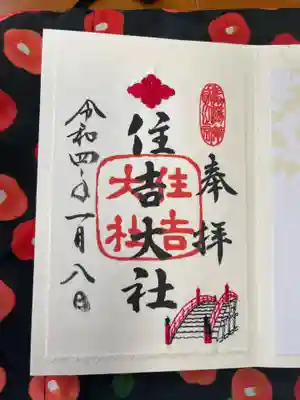 奉拝
住吉大社
住吉大社
令和四年一月八日